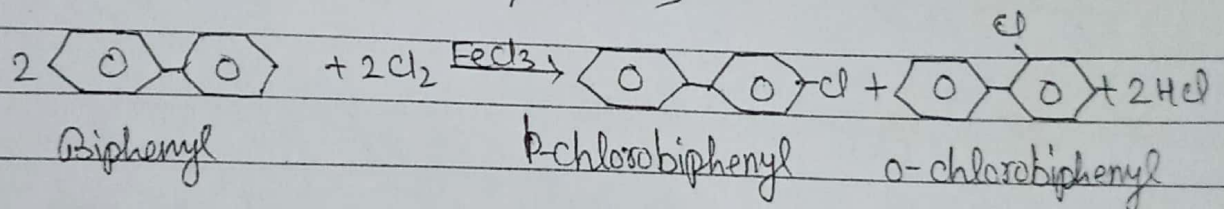 Cl
2 + 2Cl2 FeCl3 Cl + + 2HCl
Biphenyl p-chlorobiphenyl o-chlorobiphenyl